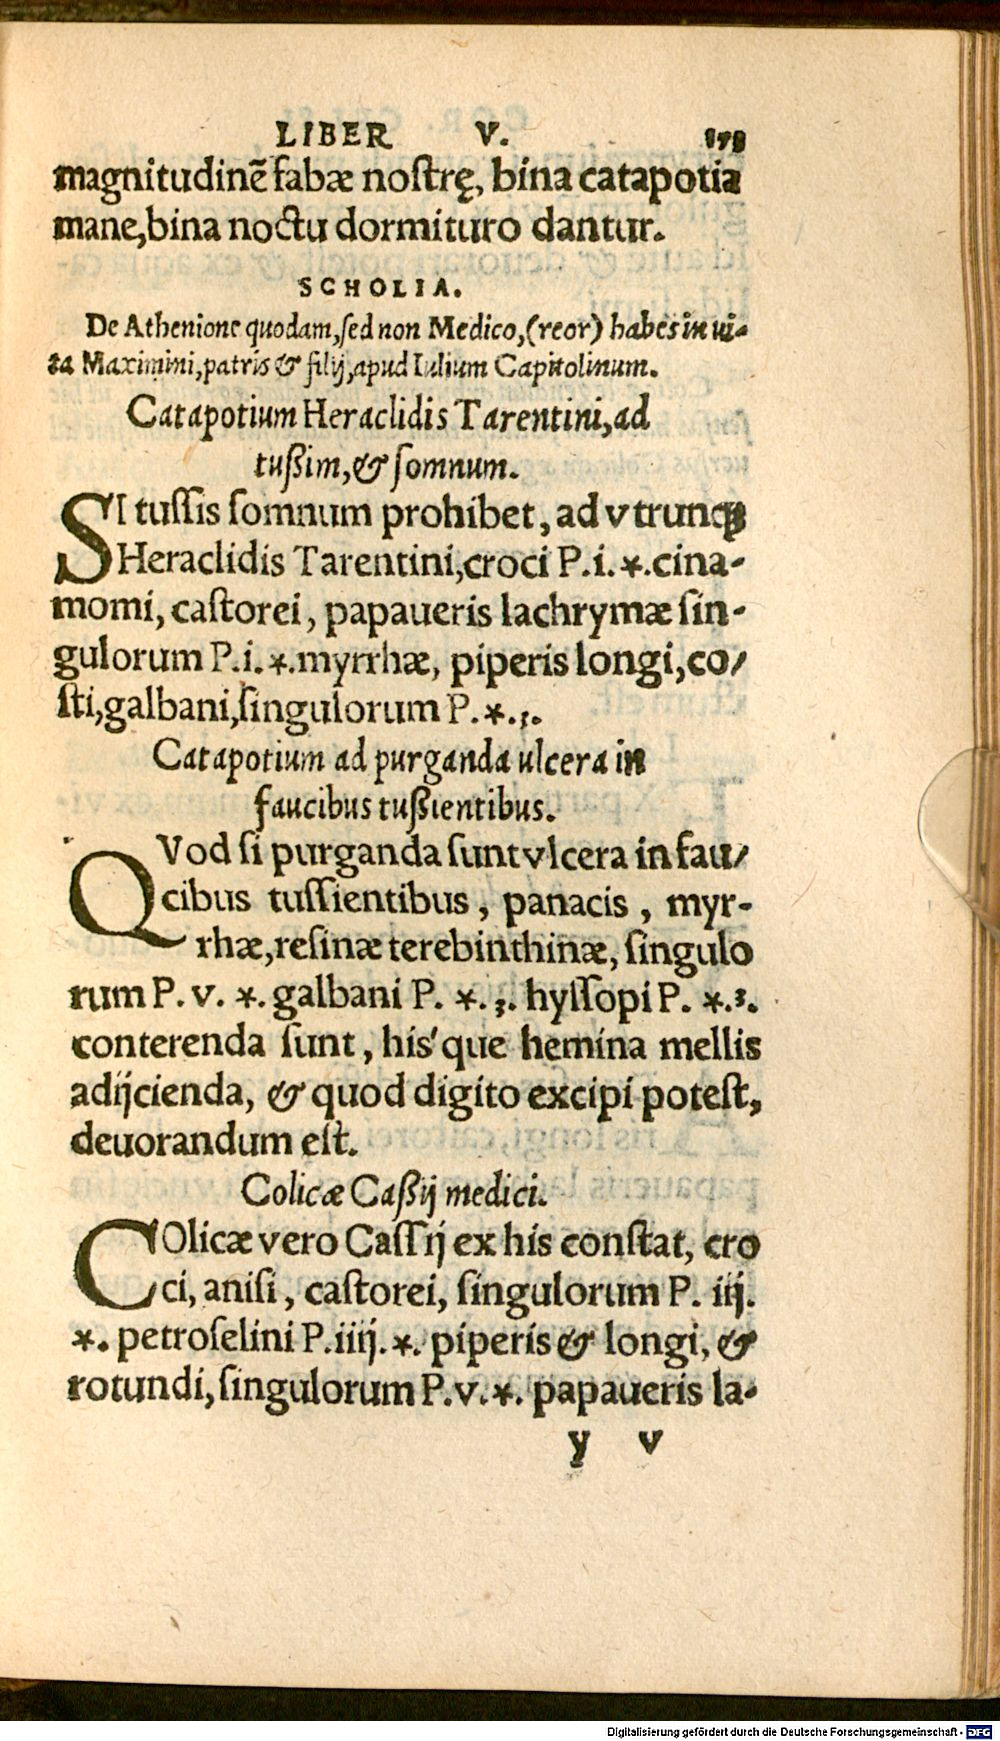 LIBER V. 178
magnitudinẽ fabæ noſtrę, bina catapotia
mane, bina noctu dormituro dantur.
SCHOLIA.
De Athenione quodam, ſed non Medico, (reor) habes in ui-
ta Maximini, patris & filij, apud Iulium Capitolinum.
Catapotium Heraclidis Tarentini, ad
tußim, & ſomnum.
SI tuſſis ſomnum prohibet, ad vtrunqꝫ
Heraclidis Tarentini, croci P.i.*.cina-
momi, caſtorei, papaueris lachrymæ ſin-
gulorum P.i.*.myrrhæ, piperis longi, co/
ſti, galbani, ſingulorum P.*.
Catapotium ad purganda ulcera in
faucibus tußientibus.
QVod ſi purganda ſunt vlcera in fau/
cibus tuſſientibus, panacis, myr-
rhæ, reſinæ terebinthinæ, ſingulo
rum P. v. *. galbani P. *. hyſſopi P. *.
conterenda ſunt, his'que hemina mellis
adijcienda, & quod digito excipi poteſt,
deuorandum eſt.
Colicæ Caßij medici.
COlicæ vero Caſſij ex his conſtat, cro
ci, aniſi, caſtorei, ſingulorum P. iij.
*. petroſelini P.iiij.*. piperis & longi, &
rotundi, ſingulorum P.v.*. papaueris la-
y v
Digitalisierung gefördert durch die Deutsche Forschungsgemeinschaft - DFG